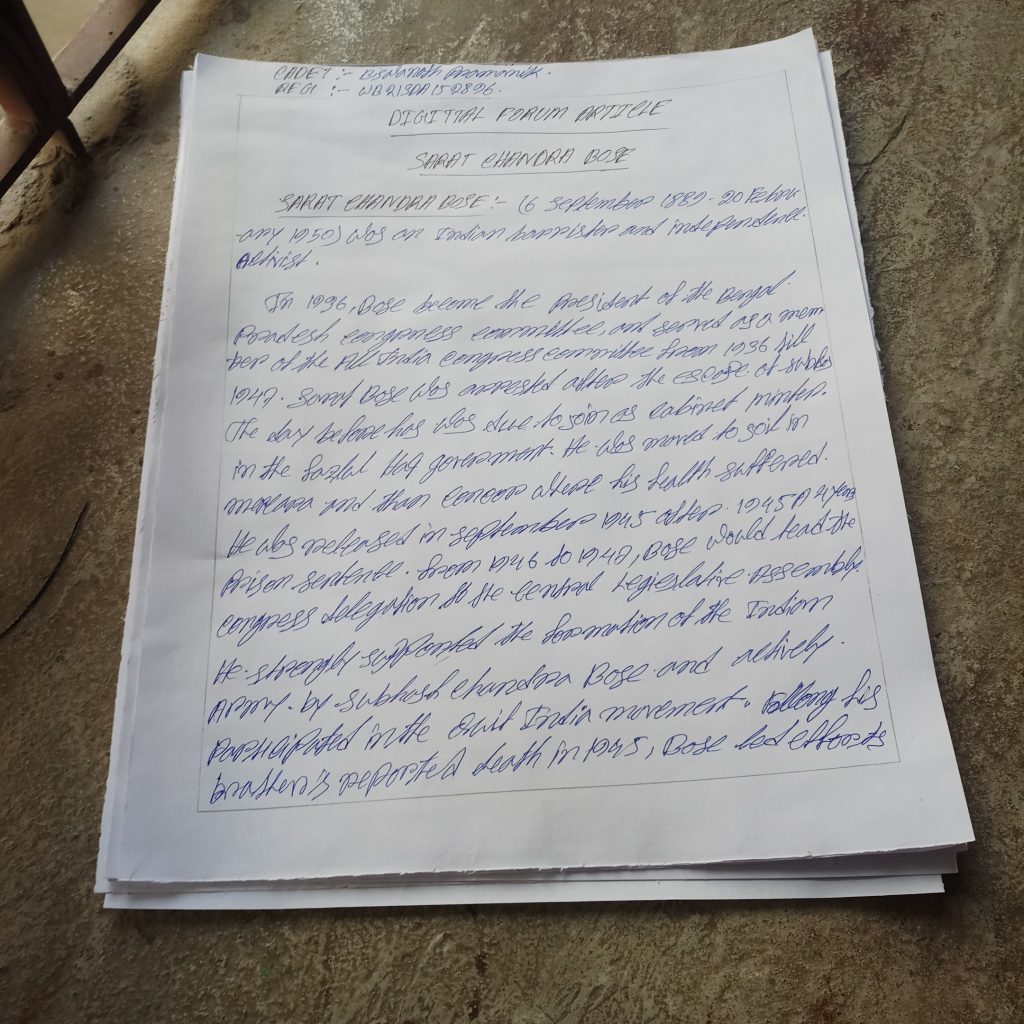 CADET :- Biswanath Pramanik.
REGI :- WB21SDA152896.
DIGITTAL FORUM ARTICLE
SARAT CHANDRA BOSE
SARAT CHANDRA BOSE :- (6 September 1889 - 20 Febru
-ary 1950) was an Indian barrister and independence
Activist.
In 1936, Bose become the president of the Bengal
Pradesh congress committee, and served as a mem
ber of the All India Congress committee from 1936 till
1947. Sarat Bose was arrested after the escape of subhas
The day before has was due to join as cabinet minter.
in the fazlul Haq government. He was moved to jail in
and than where his health suffered.
He was released in september 1945 after 1945 A 4 years
Prison sentence. from 1946 to 1947, Bose would lead the
congress delegation to the central Legieslative Assembly.
He strongly supported the formation of the Indian
Army by Subhash Chandra Bose and actively.
Participated in the Quit India movement. his
brather's reported death in 1945, Bose led efforts